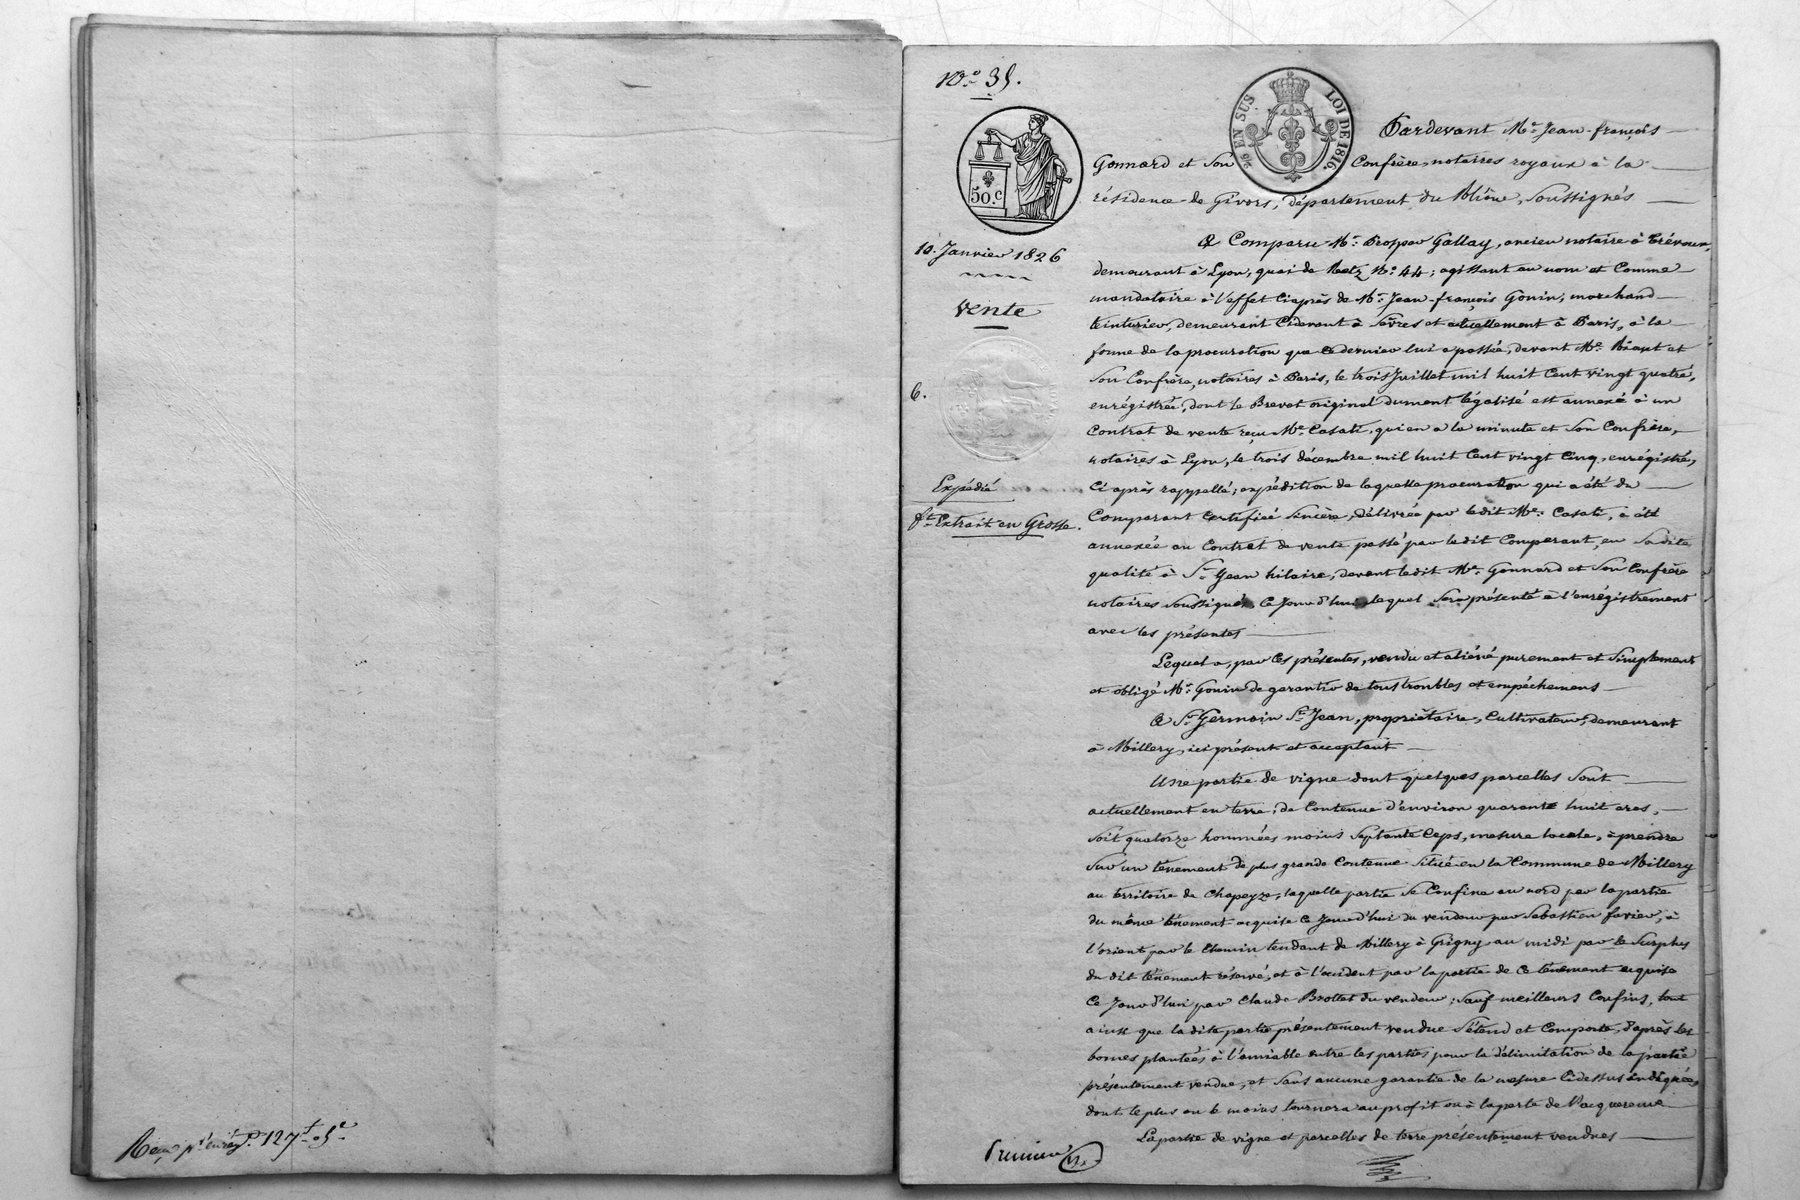 Reçu pr enregt. 127f. 05c.
No. 35.
26 EN SUS LOI DE 1816
50.c
10. Janvier 1826
Vente
6.
Expédié
ft. Extrait en Grosse.
Pardevant Me. Jean-françois
Gonnard et Son Confrère, notaires royaux à la
résidence de Givors, département du Rhône, Soussignés
A Comparu Mr. Prosper Gallay, ancien notaire à Trévoux,
demeurant à Lyon, quai de Retz No. 44; agissant au nom et Comme
mandataire à l'effet Ciaprès de Mr. Jean-françois Gonin, marchand
teinturier, demeurant Cidevant à Sèvres et actuellement à Paris, à la
forme de la procuration que Ce dernier lui a passée, devant Me. Riant et
Son Confrère, notaires à Paris, le trois Juillet mil huit Cent vingt quatre,
enrégistrée, dont le Brevet original dument légalisé est annexé à un
Contrat de vente reçu Me. Casati, qui en a la minute et Son Confrère,
notaires à Lyon, le trois décembre mil huit Cent vingt Cinq, enrégistré,
Ci après rappellé; expédition de laquelle procuration qui a été du
Comparant Certifiée Sincère, délivrée par ledit Me. Casati, a été
annexée au Contrat de vente passé par ledit Comparant, en Sadite
qualité à Sr. Jean hilaire, devant ledit Me. Gonnard et Son Confrère
notaires Soussignés, Ce Jourd'hui, lequel Sera présenté à l'enrégistrement
avec les présentes
Lequel a, par Ces présentes, vendu et aliéné purement et Simplement
et obligé Mr. Gonin de garantir de tous troubles et empêchemens
A Sr. Germain St. Jean, propriétaire, Cultivateur, demeurant
à Millery, ici présent et acceptant
Une partie de vigne dont quelques parcelles Sont
actuellement en terre, de Contenue d'environ quarante huit ares,
Soit quatorze hommées moins Septante Ceps, mesure locale, à prendre
Sur un tènement de plus grande Contenue Situé en la Commune de Millery
au territoire de Chapeyze, laquelle partie Se Confine au nord par la partie
du même tènement acquise Ce Jourd'hui du vendeur par Sebastien favier, à
l'orient par le Chemin tendant de Millery à Grigny au midi par le Surplus
du dit tènement réservé, et à l'occident par la partie de Ce tènement acquise
Ce Jourd'hui par Claude Brottet du vendeur; Sauf meilleurs Confins, tout
ainsi que la dite partie présentement vendue S'étend et Comporte, d'après les
bornes plantées à l'amiable entre les parties pour la délimitation de la partie
présentement vendue, et Sans aucune garantie de la mesure Cidessus indiquée,
dont le plus ou le moins tournera au profit ou à la perte de l'acquereur
La partie de vigne et parcelles de terre présentement vendues
Premier